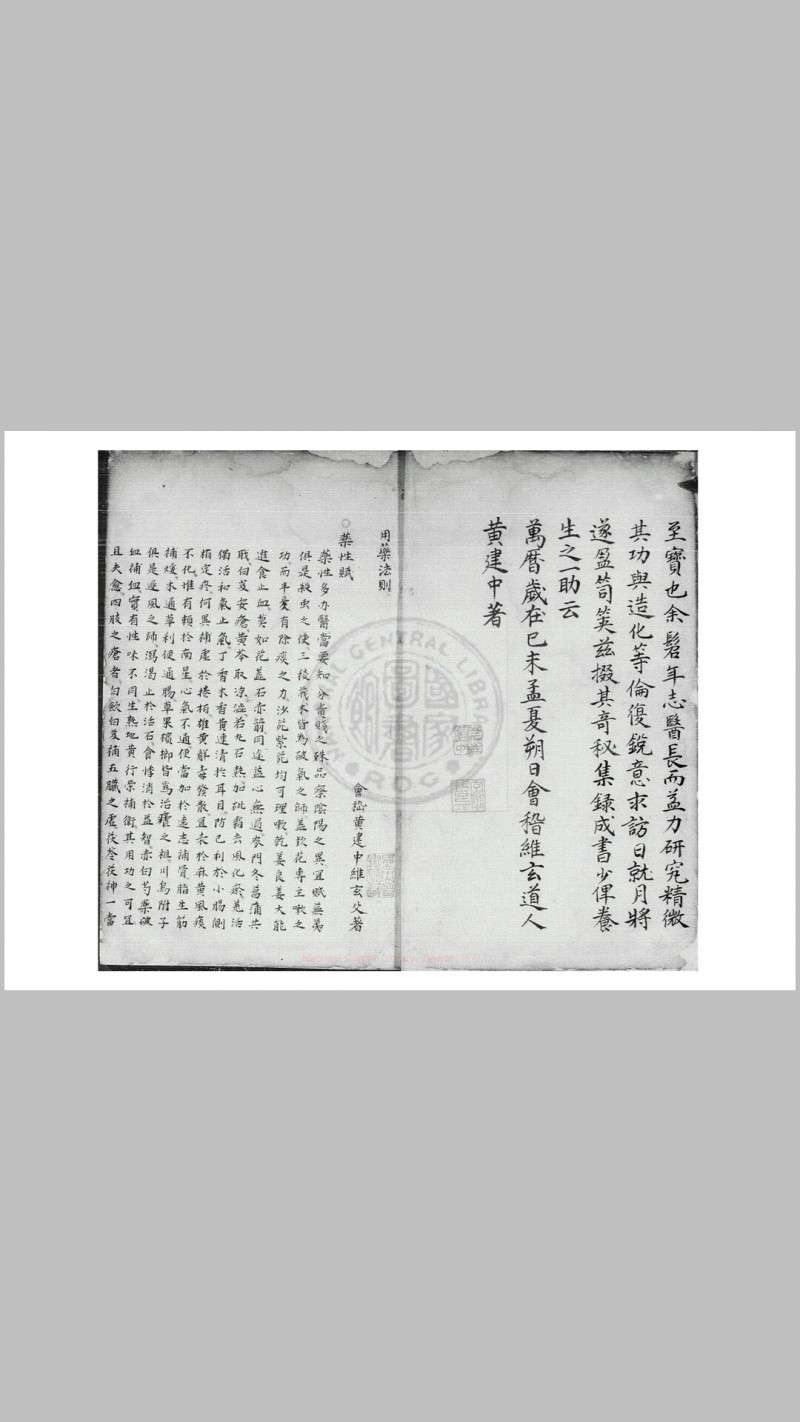 至寶也余髫年志醫長而益力研究精微
其功與造化等倫復銳意求訪日就月將
遂盈笥篋茲掇其奇秘集錄成書少俾養
生之一助云
萬曆歲在己未孟夏朔日會稽維玄道人
黃建中著
用藥法則
會稽黃建中維玄父著
○藥性賦
藥性多力醫當要知分貴賤之殊品察陰陽之異宜賦蕪荑
俱是殺虫之使三稜莪朮皆為破氣之師蓋款花專主嗽之
功而半夏有除痰之力沙苑紫苑均可理嗽乾姜良姜大能
進食止血莫如花蕊石亦前同途益心無過麥門冬菖蒲共
戢白芨安瘡黃芩取涼溫若大石熱加砒霜去風化瘀羌活
獨活和氣止氣丁香木香黃連清於耳目防己利於小腸側
栢定疼何異補虛於捲栢雄黃解毒發散宜求於麻黃風痰
不化惟有賴於南星心氣不通便當加於遠志補骨脂生筋
補煖木通草利便通腸草果檳榔皆為治癨之祖川烏附子
俱是逐風之師瀉渴止於活石食悸消於益智赤白芍藥破
血補血實有性味不同生熟地黃行榮補衛其用功之可宜
且夫愈四肢之瘡者白斂白芨補五臟之虛茯苓茯神一當
NATIONAL CENTRAL LIBRARY
R.O.C.
國家圖書館